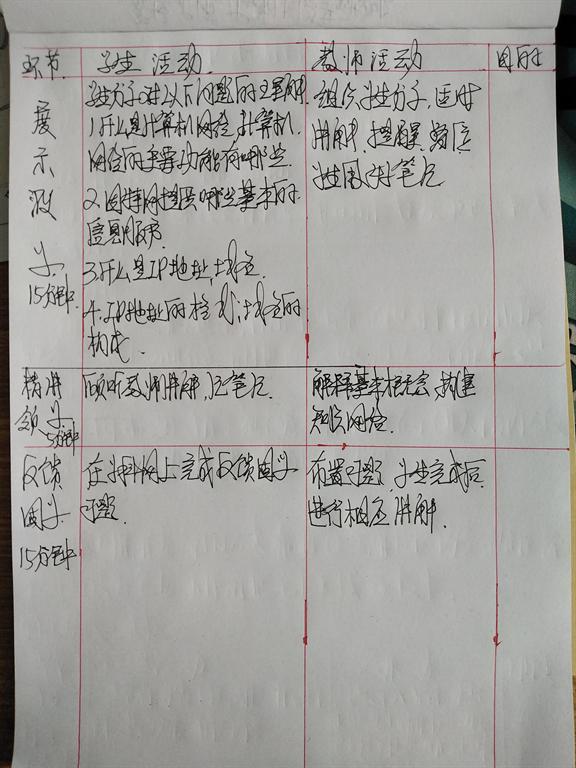 环节 学生活动 教师活动 目的
展示激学 15分钟
学生分享对以下问题的理解
1.什么是计算机网络,计算机
网络的主要功能有哪些.
2.因特网提供哪些基本的
信息服务.
3.什么是IP地址,域名.
4.IP地址的格式;域名的
构成.
组织学生分享,适时
讲解,提醒
学生用笔记
精讲领学 5分钟
倾听教师讲解,记笔记.
解释基本概念,构建
知识网络.
反馈固学 15分钟
在 网上完成反馈固学
习题.
布置习题,学生完成后
进行相应讲解.